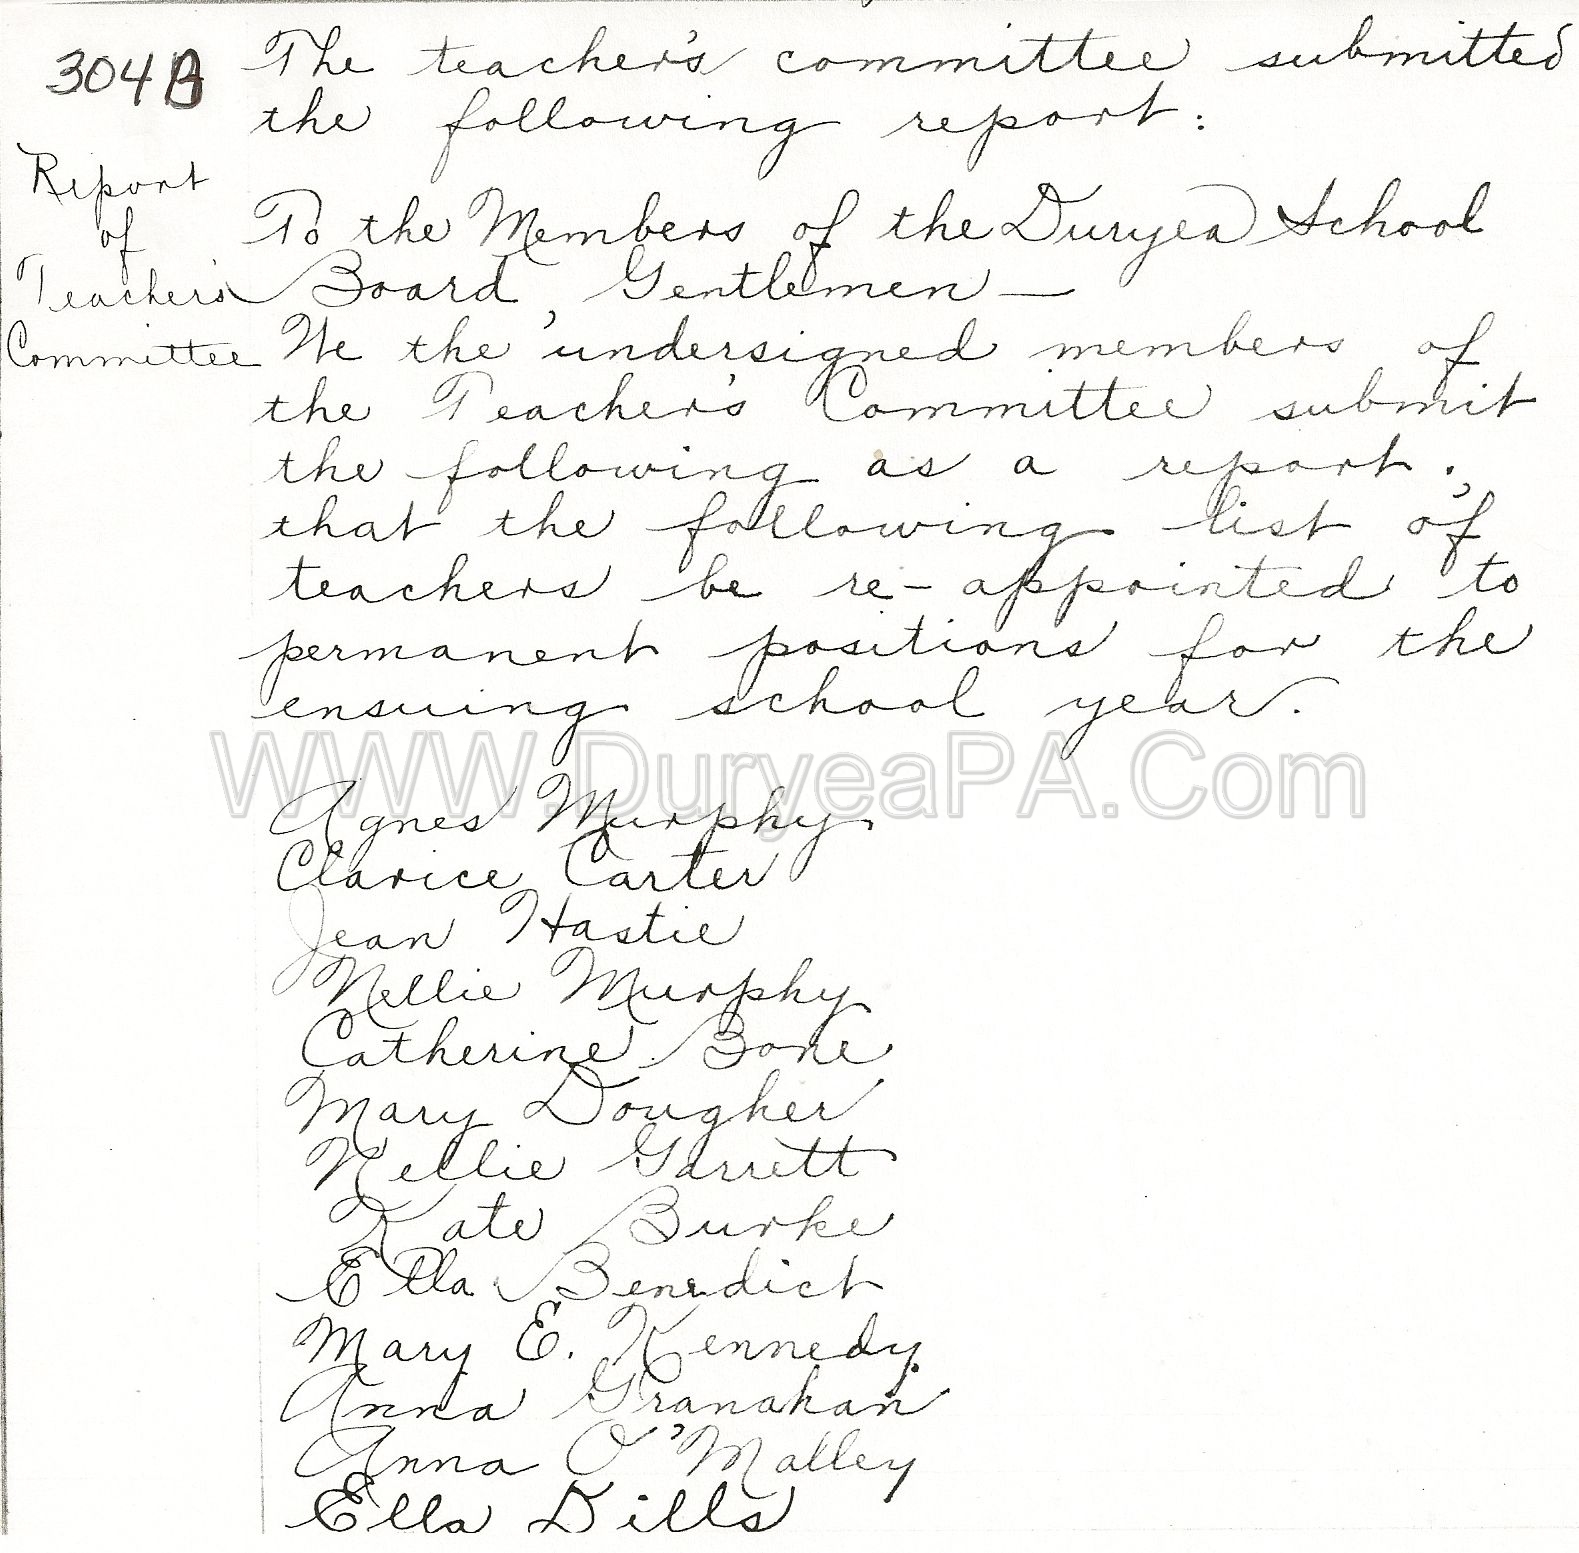 304B
The teacher's committee submitted
the following report:
Report
of
Teacher's
Committee
To the Members of the Duryea School
Board, Gentlemen —
We the undersigned members of
the Teacher's Committee submit
the following as a report,
that the following list of
teachers be re-appointed to
permanent positions for the
ensuing school year.
WWW.DuryeaPA.Com
Agnes Murphy
Clarice Carter
Jean Hastie
Nellie Murphy
Catherine Bone
Mary Dougher
Nellie Garrett
Kate Burke
Ella Benedict
Mary E. Kennedy
Anna Granahan
Anna O'Malley
Ella Dills